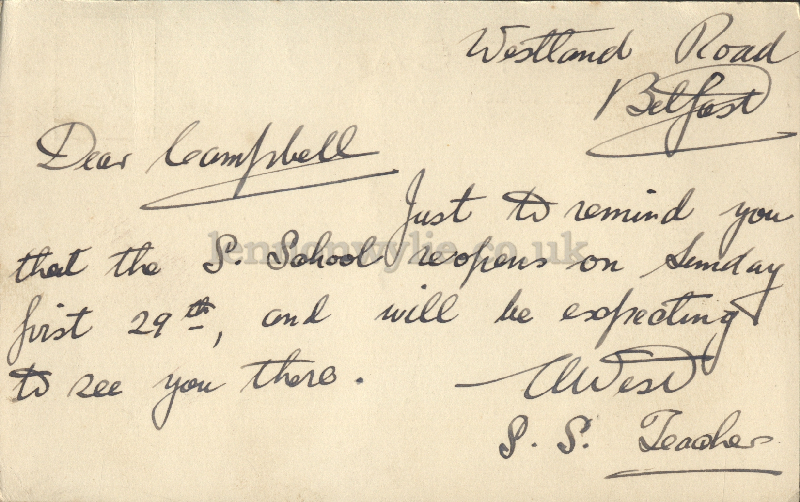 Westland Road
Belfast
Dear Campbell
Just to remind you
that the S. School reopens on Sunday
first 29th, and will be expecting
to see you there.
West
S. S. Teacher
lennonwylie.co.uk